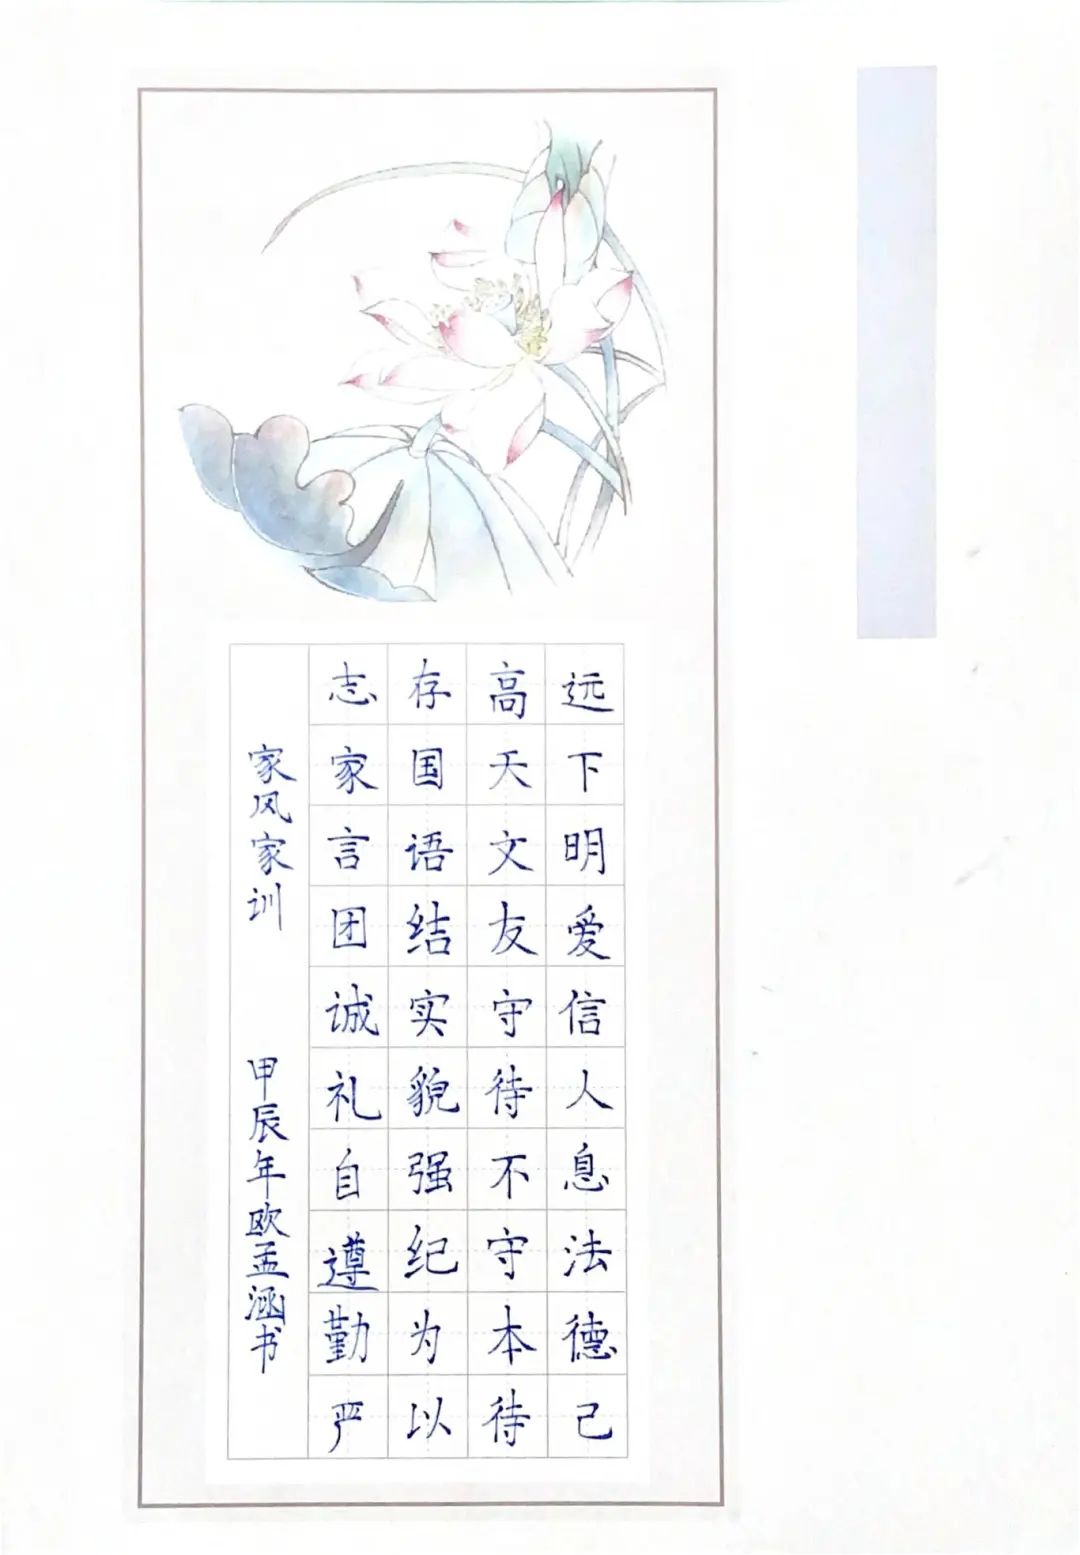 志存高远
家国天下
言语文明
团结友爱
诚实守信
礼貌待人
自强不息
遵纪守法
勤为本德
严以待己
家风家训
甲辰年欧孟涵书